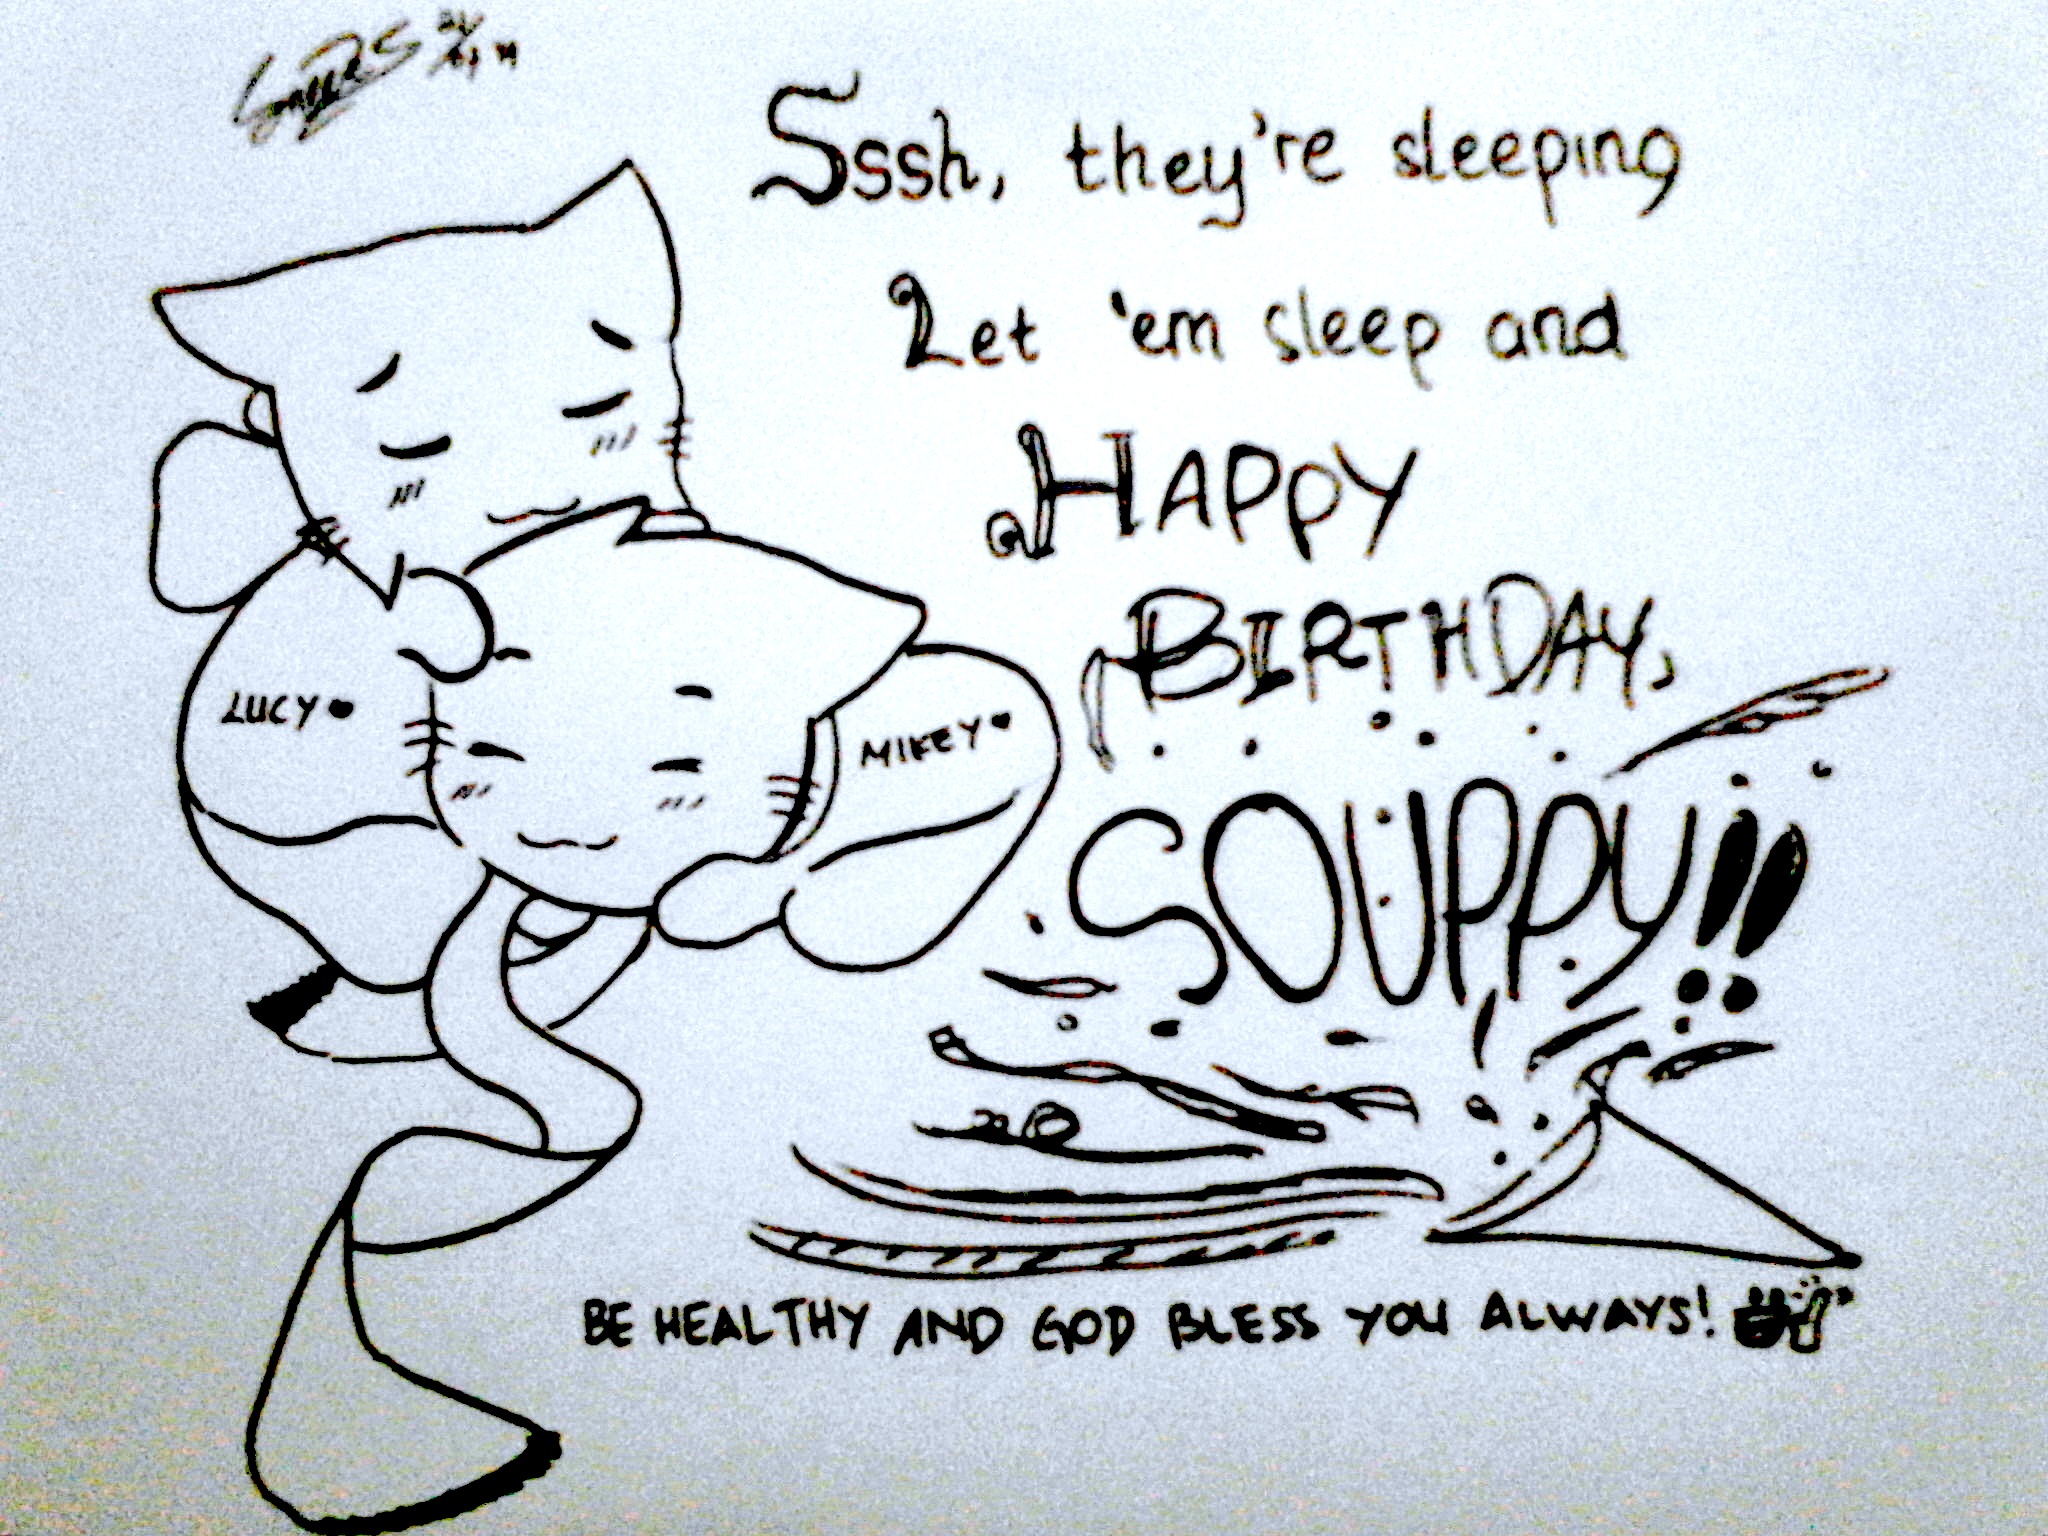 Sssh, they're sleeping
Let 'em sleep and
HAPPY
BIRTHDAY,
SOUPPY!!
LUCY
MIKEY
BE HEALTHY AND GOD BLESS YOU ALWAYS!